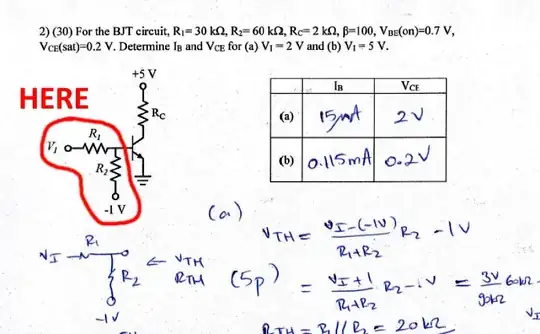 2) (30) For the BJT circuit, R₁= 30 kΩ, R₂= 60 kΩ, Rc= 2 kΩ, β=100, VBE(on)=0.7 V,
VCE(sat)=0.2 V. Determine IB and VCE for (a) VI = 2 V and (b) VI = 5 V.
+5 V
HERE
Rc
R₁
VI
R₂
-1 V
IB VCE
(a) 2V
(b) 0.115mA 0.2V
(a)
VTH = VI-(-1V) / R1+R2 R2 -1V
R1
VI
R2
← VTH
RTH
-1V
(5p)
= VI+1 / R1+R2 R2-1V = 3V / 90kΩ 60kΩ
RTH = R1//R2 = 20kΩ
VI